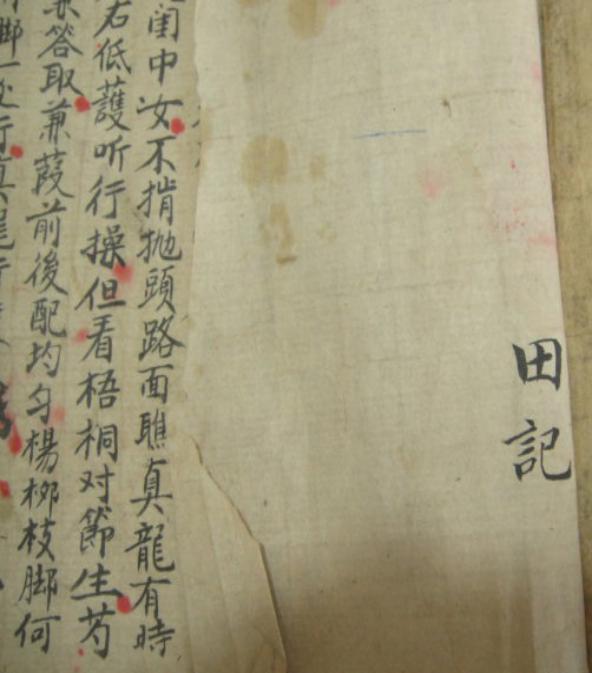 田記
閨中女不掯抛頭路面瞧真龍有時
右低護听行操但看梧桐对節生芍
答取蒹葭前後配均匀楊柳枝脚何
脚一
行真龍行